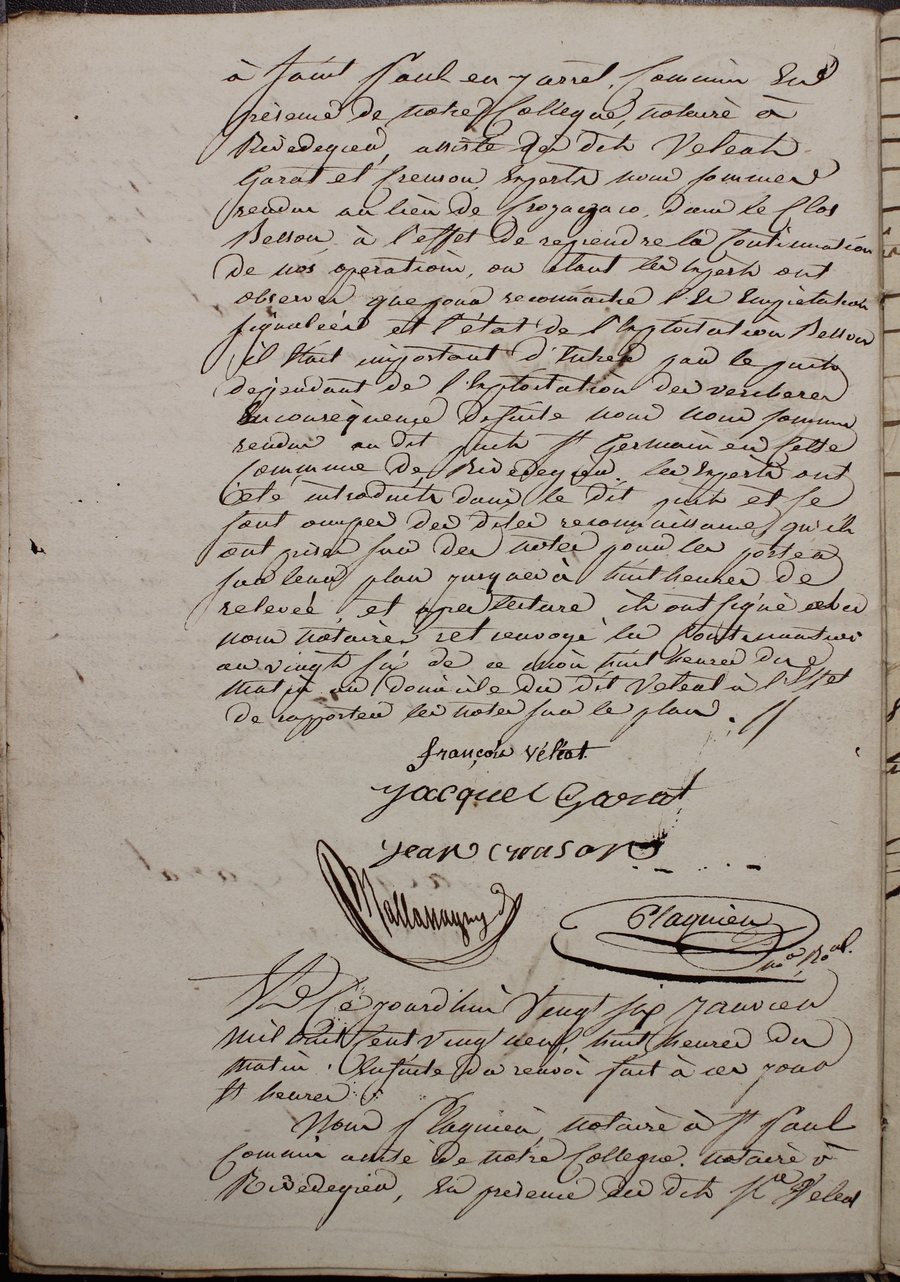 à Saint Paul en Jarret, Commis En
présence de notre Collegue, notaire à
Rivedegier, assisté des dits Veleat
Garat et Crenson, Experts nous sommes
rendus au lieu de dans le Clos
Besson, à l'effet de reprendre la Continuation
de nos opérations, ou étant les Experts ont
observé que pour reconnaitre l'Empietation
signalées et l'état de l'Exploitation Besson
il était important d'Entrer par le puits
dependant de l'Exploitation des vercheres
En consèquence de suite nous nous sommes
rendus au dit puits St Germain en Cette
Commune de Rivedegier, les Experts ont
été introduits dans le dit puits et se
sont occupés des dites reconnaissances, qu'ils
ont prises sur des notes pour les porter
sur leur plan jusques à huit heures de
relevée, et après lecture ils ont signé avec
nous notaires et renvoyé la Continuation
au vingt six de ce mois huit heures du
matin au domicile du dit Veleat à l'Effet
de rapporter les notes sur le plan. //
françois Véléat.
Jacques Garat
jean crouson
Plagnieu
no.re Ro.al.
Le Cé jourd'hui Vingt six Janvier
mil huit Cent vingt neuf, huit heures du
matin. Ensuite du renvoi fait à ces jour
& heures.
Nous Plagnieu, notaire à St Paul
Commis assisté de notre Collegue. notaire à
Rivedegier, En présence des dits Veleat